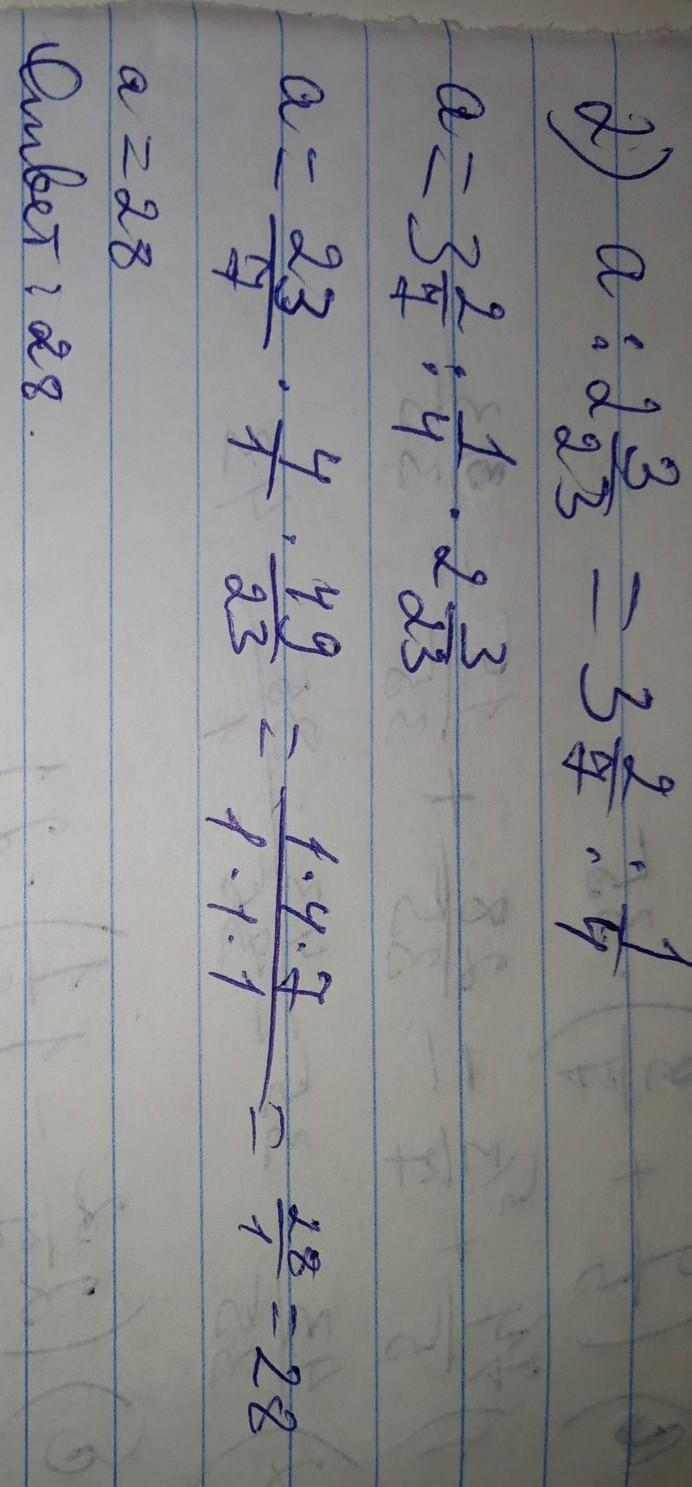 2) a : 2 3/23 = 3 2/7 : 1/4
a = 3 2/7 : 1/4 · 2 3/23
a = 23/7 · 4/1 · 49/23 = 1·4·7/1·1·1 = 28/1 = 28
a = 28
Ответ: 28.